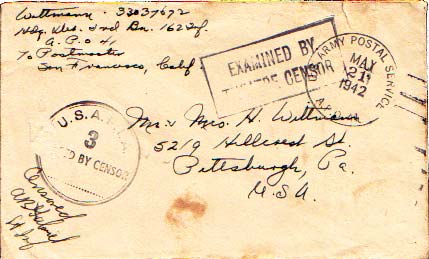 Wittmann 33037672
Hdq. Det. 3rd Bn. 162 Inf.
A.P.O 41
To Postmaster
San Francisco, Calif
EXAMINED BY
CENSOR
ARMY POSTAL SERVICE
MAY
21
1942
A.P.O.
U.S.A.
3
ED BY CENSOR
Mr & Mrs. H. Wittmann
5219 Hillcrest St.
Pittsburgh, Pa.
U.S.A.
Censored